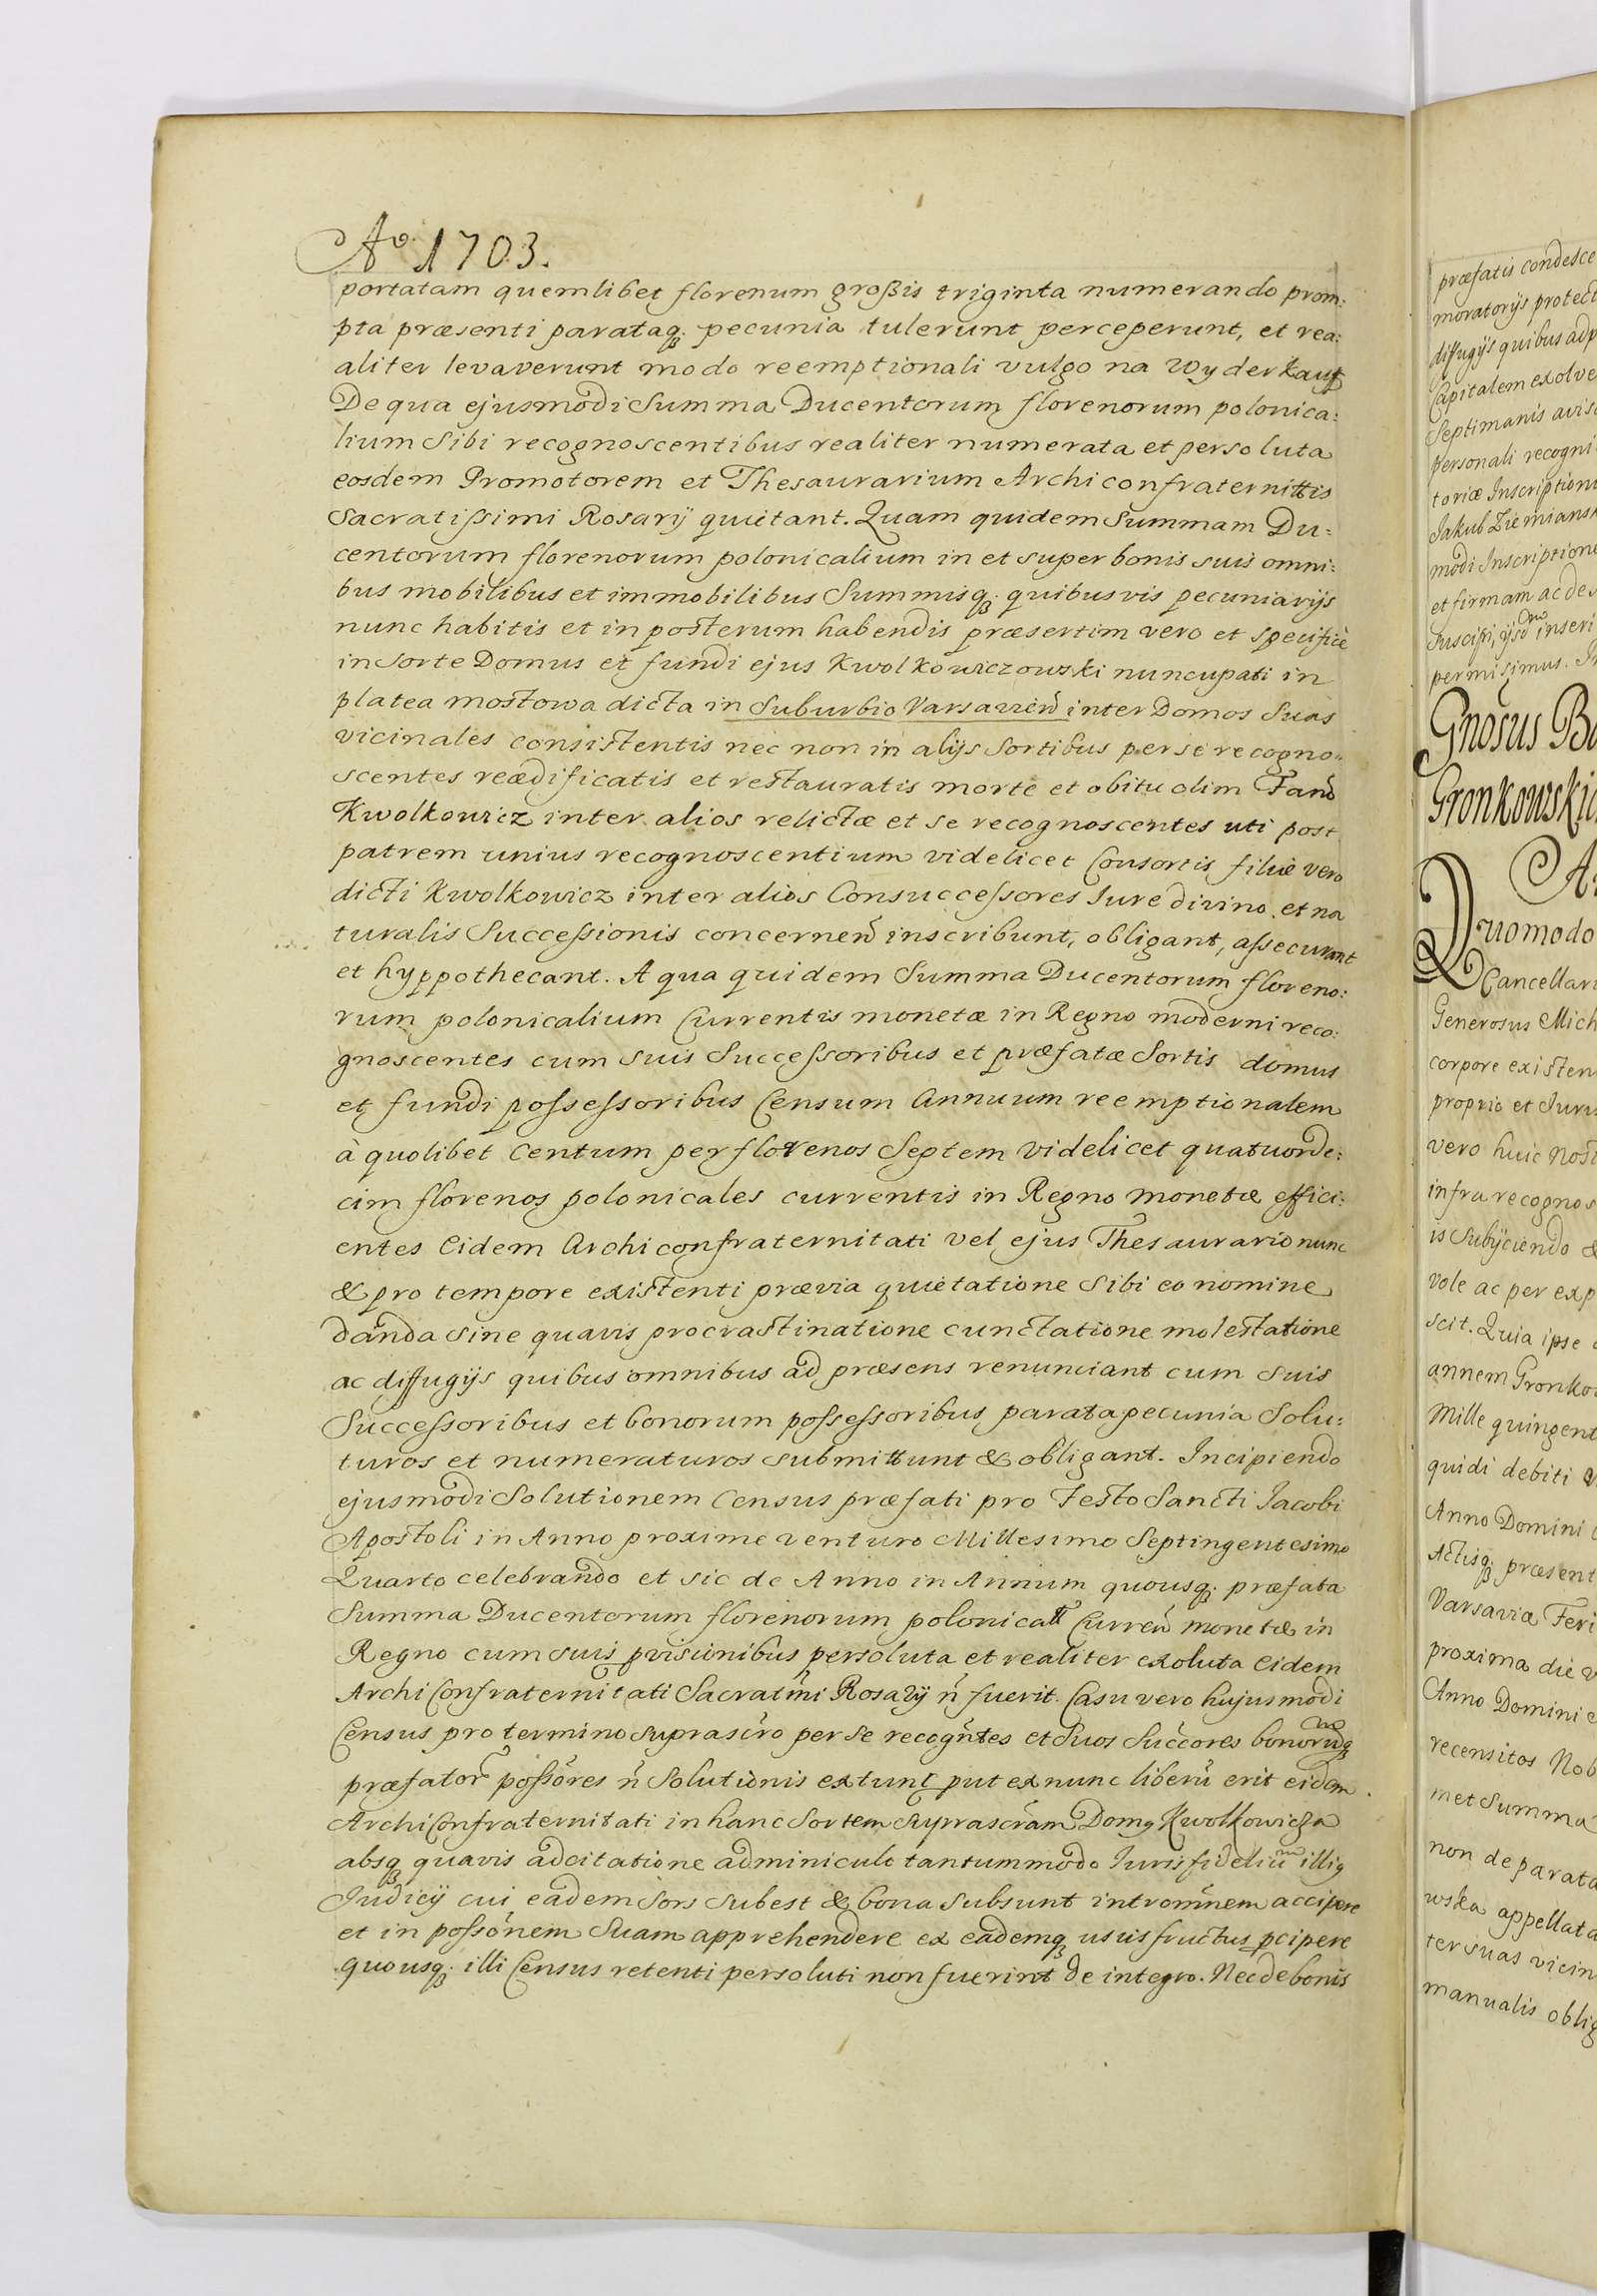 Aº 1703.
portatam quemlibet florenum großis triginta numerando prom:
pta præsenti parataq₃ pecunia tulerunt perceperunt, et rea:
aliter levaverunt modo reemptionali vulgo na Wyderkauf
De qua ejusmodi Summa Ducentorum florenorum polonica:
lium Sibi recognoscentibus realiter numerata et persoluta
eosdem Promotorem et Thesaurarium Archiconfraternittis
Sacratissimi Rosarij quietant. Quam quidem Summam Du:
centorum florenorum polonicalium in et super bonis suis omni:
bus mobilibus et immobilibus Summisq₃ quibusvis pecuniarijs
nunc habitis et in posterum habendis præsertim vero et specificè
in Sorte Domus et fundi ejus Kwolkowiczowski nuncupati in
platea mostowa dicta in Suburbio Varsavień inter Domos Suas
vicinales consistentis nec non in alijs Sortibus per se recogno:
scentes reædificatis et restauratis morte et obitu olim Fand
Kwolkowicz inter alios relictæ et se recognoscentes uti post
patrem unius recognoscentium videlicet Consortis filiæ vero
dicti Kwolkowicz inter alios Consuccessores Iure divino et na
turalis Successionis concerneń inscribunt, obligant, assecurant
et hyppothecant. A qua quidem Summa Ducentorum floreno:
rum polonicalium Currentis monetæ in Regno moderni reco:
gnoscentes cum suis Successoribus et præfatæ Sortis domus
et fundi possessoribus Censum Annuum reemptionalem
à quolibet Centum per florenos Septem videlicet quatuorde:
cim florenos polonicales currentis in Regno monetæ effici:
entes Eidem Archiconfraternitati vel ejus Thesaurario nunc
& pro tempore existenti prævia quietatione Sibi eo nomine
danda sine quavis procrastinatione cunctatione molestatione
ac diffugijs quibus omnibus ad præsens renunciant cum Suis
Successoribus et bonorum possessoribus parata pecunia Solu:
turos et numeraturos submittunt & obligant. Incipiendo
ejusmodi Solutionem Census præfati pro Festo Sancti Iacobi
Apostoli in Anno proxime venturo Millesimo Septingentesimo
Quarto celebrando et sic de Anno in Annum quousq₃ præfata
Summa Ducentorum florenorum polonicall Curreń monetæ in
Regno cum suis pvisionibus persoluta et realiter exoluta Eidem
Archi Confraternitati Sacratmi Rosarij ń fuerit. Casu vero hujusmodi
Census pro termino suprascro per Se recogntes et Suos Succores bonorumq₃
præfator possores ń Solutionis extunc put ex nunc liberu erit eidem.
Archi Confraternitati in hanc Sortem suprascram Domg Kwolkowicza
absq₃ quavis adcitatione adminiculo tantummodo Iuris fideliu illig
Judicij cui eadem Sors Subest & bona Subsunt intromnem accipere
et in possonem Suam apprehendere ex eademq₃ usus fructus pcipere
quousq₃ illi Census retenti persoluti non fuerint de integro. Nec de bonis
præfatis condesce
moratorijs protect
diffugijs quibus adp
Capitalem exolve
Septimanis aviso
personali recogni
toriæ Inscription
Jakub Ziemiansk
modi Inscriptione
et firmam ac de
suscipi, ijsd inseri
permisimus. In
Gnosus Ba
Gronkowskie
Quomodo
Cancellari
Generosus Mich
corpore existen
proprio et Iuris
vero huic Nost
infra recognos
is subijciendo &
vole ac per exp
scit. Quia ipse
annem Gronko
Mille quingent
quidi debiti
Anno Domini
Actisq₃ præsent
Varsaviæ Feri
proxima die
Anno Domini
recensitos Nob
met Summa
non de parata
wska appellata
ter suas vicin
manualis oblig